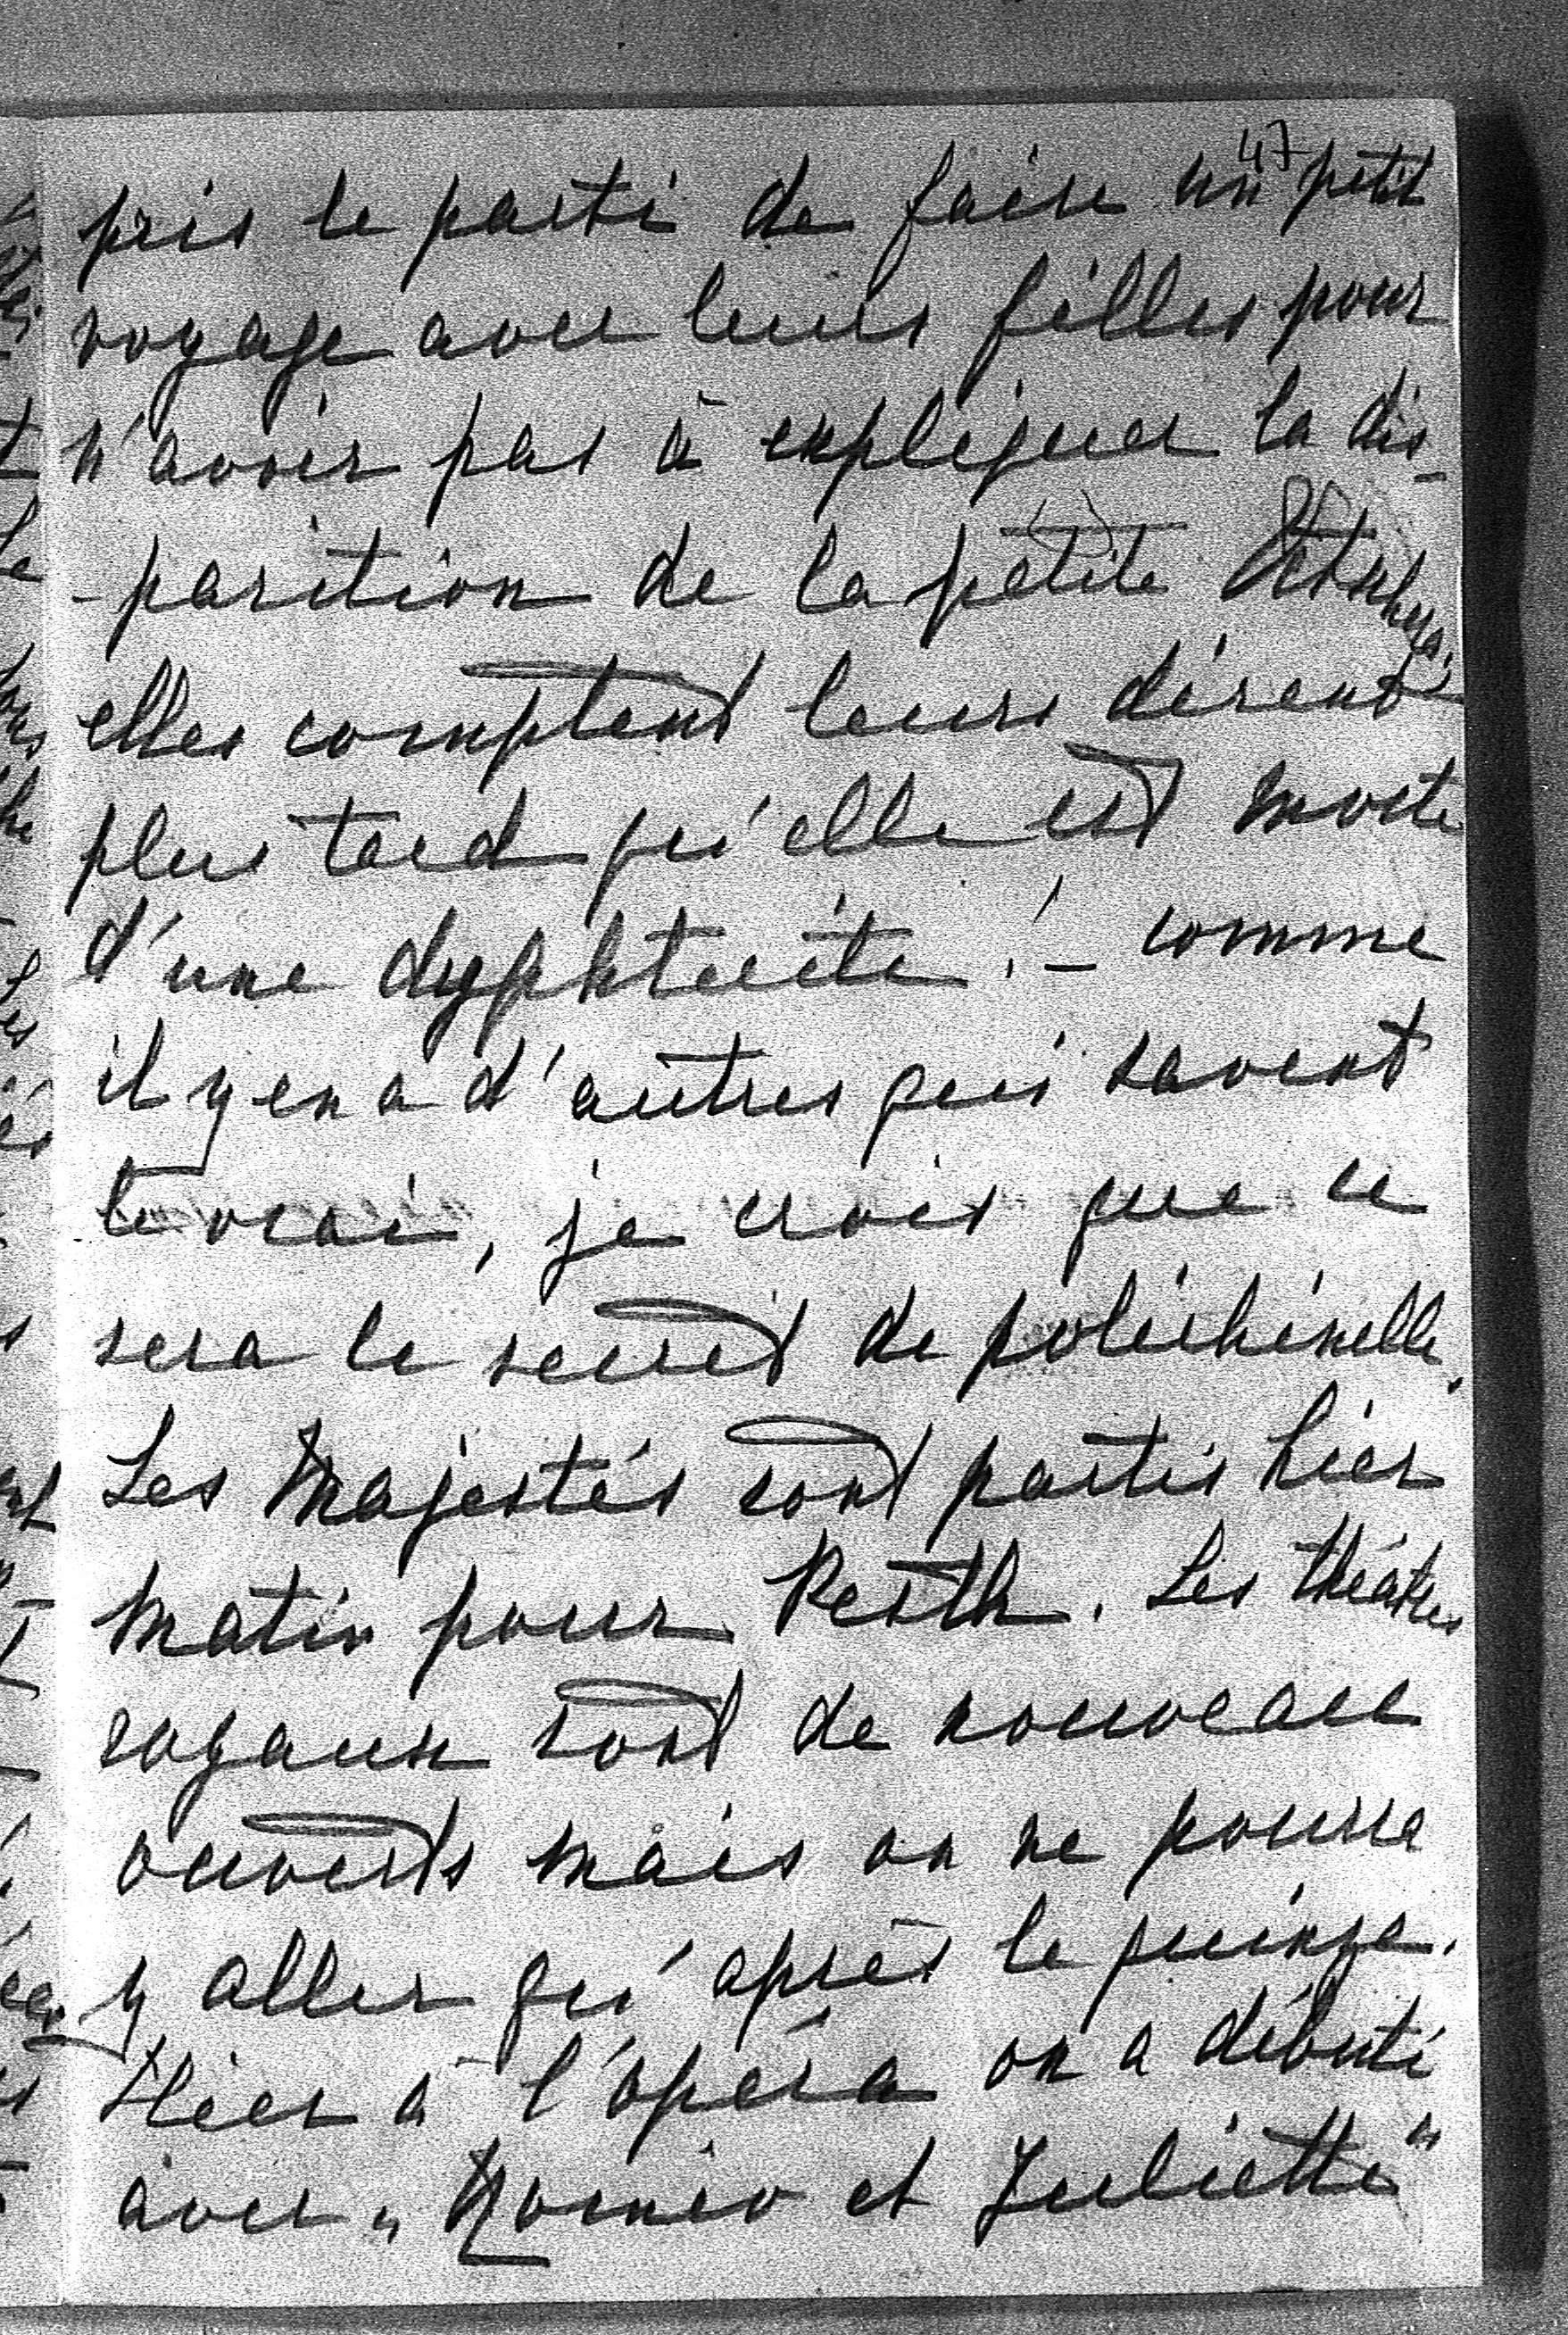 47
pris le parti de faire un petit
voyage avec leurs filles pour
n'avoir pas à expliquer la dis-
-parition de la petite
elles comptent leurs dirent
plus tard qu'elle est morte
d'une dyphterite! - comme
il y en a d'autres qui savent
le vrai, je crois que ce
sera le secret de polichinelle.
Les Majestés sont partis hier
matin pour Pesth. Les théâtres
royaux sont de nouveau
ouverts mais on ne pourra
y aller qu'après le quinze.
Hier à l'opéra on a débuté
avec „Roméo et Juliette"